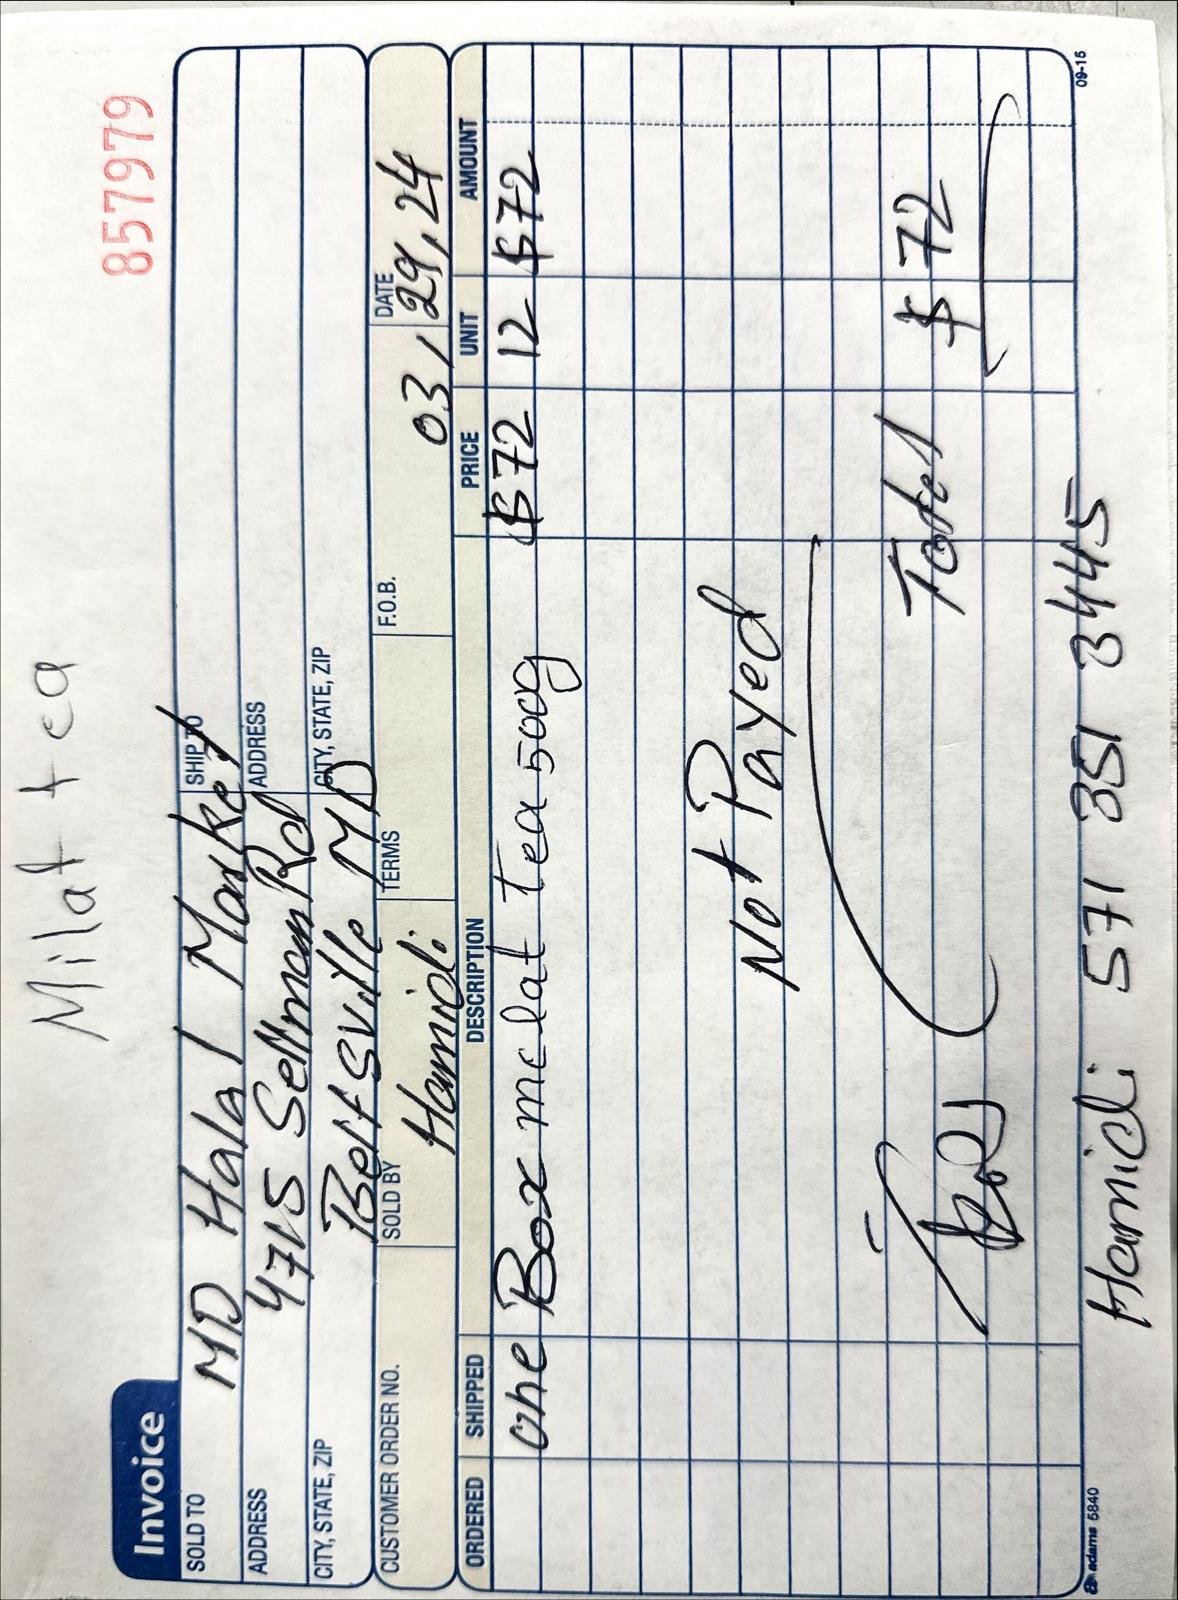 Milat tea
857979
Invoice
SOLD TO MD Halal Market SHIP TO
ADDRESS 4715 Sellman Rd ADDRESS
CITY, STATE, ZIP Beltsville MD CITY, STATE, ZIP
CUSTOMER ORDER NO. SOLD BY Hamidi TERMS F.O.B. DATE 03, 29, 24
ORDERED SHIPPED DESCRIPTION PRICE UNIT AMOUNT
one Box melat tea 500g $72 12 $72
Not Payed
Total $72
adams 5840 09-15
Hamidi 571 351 3445